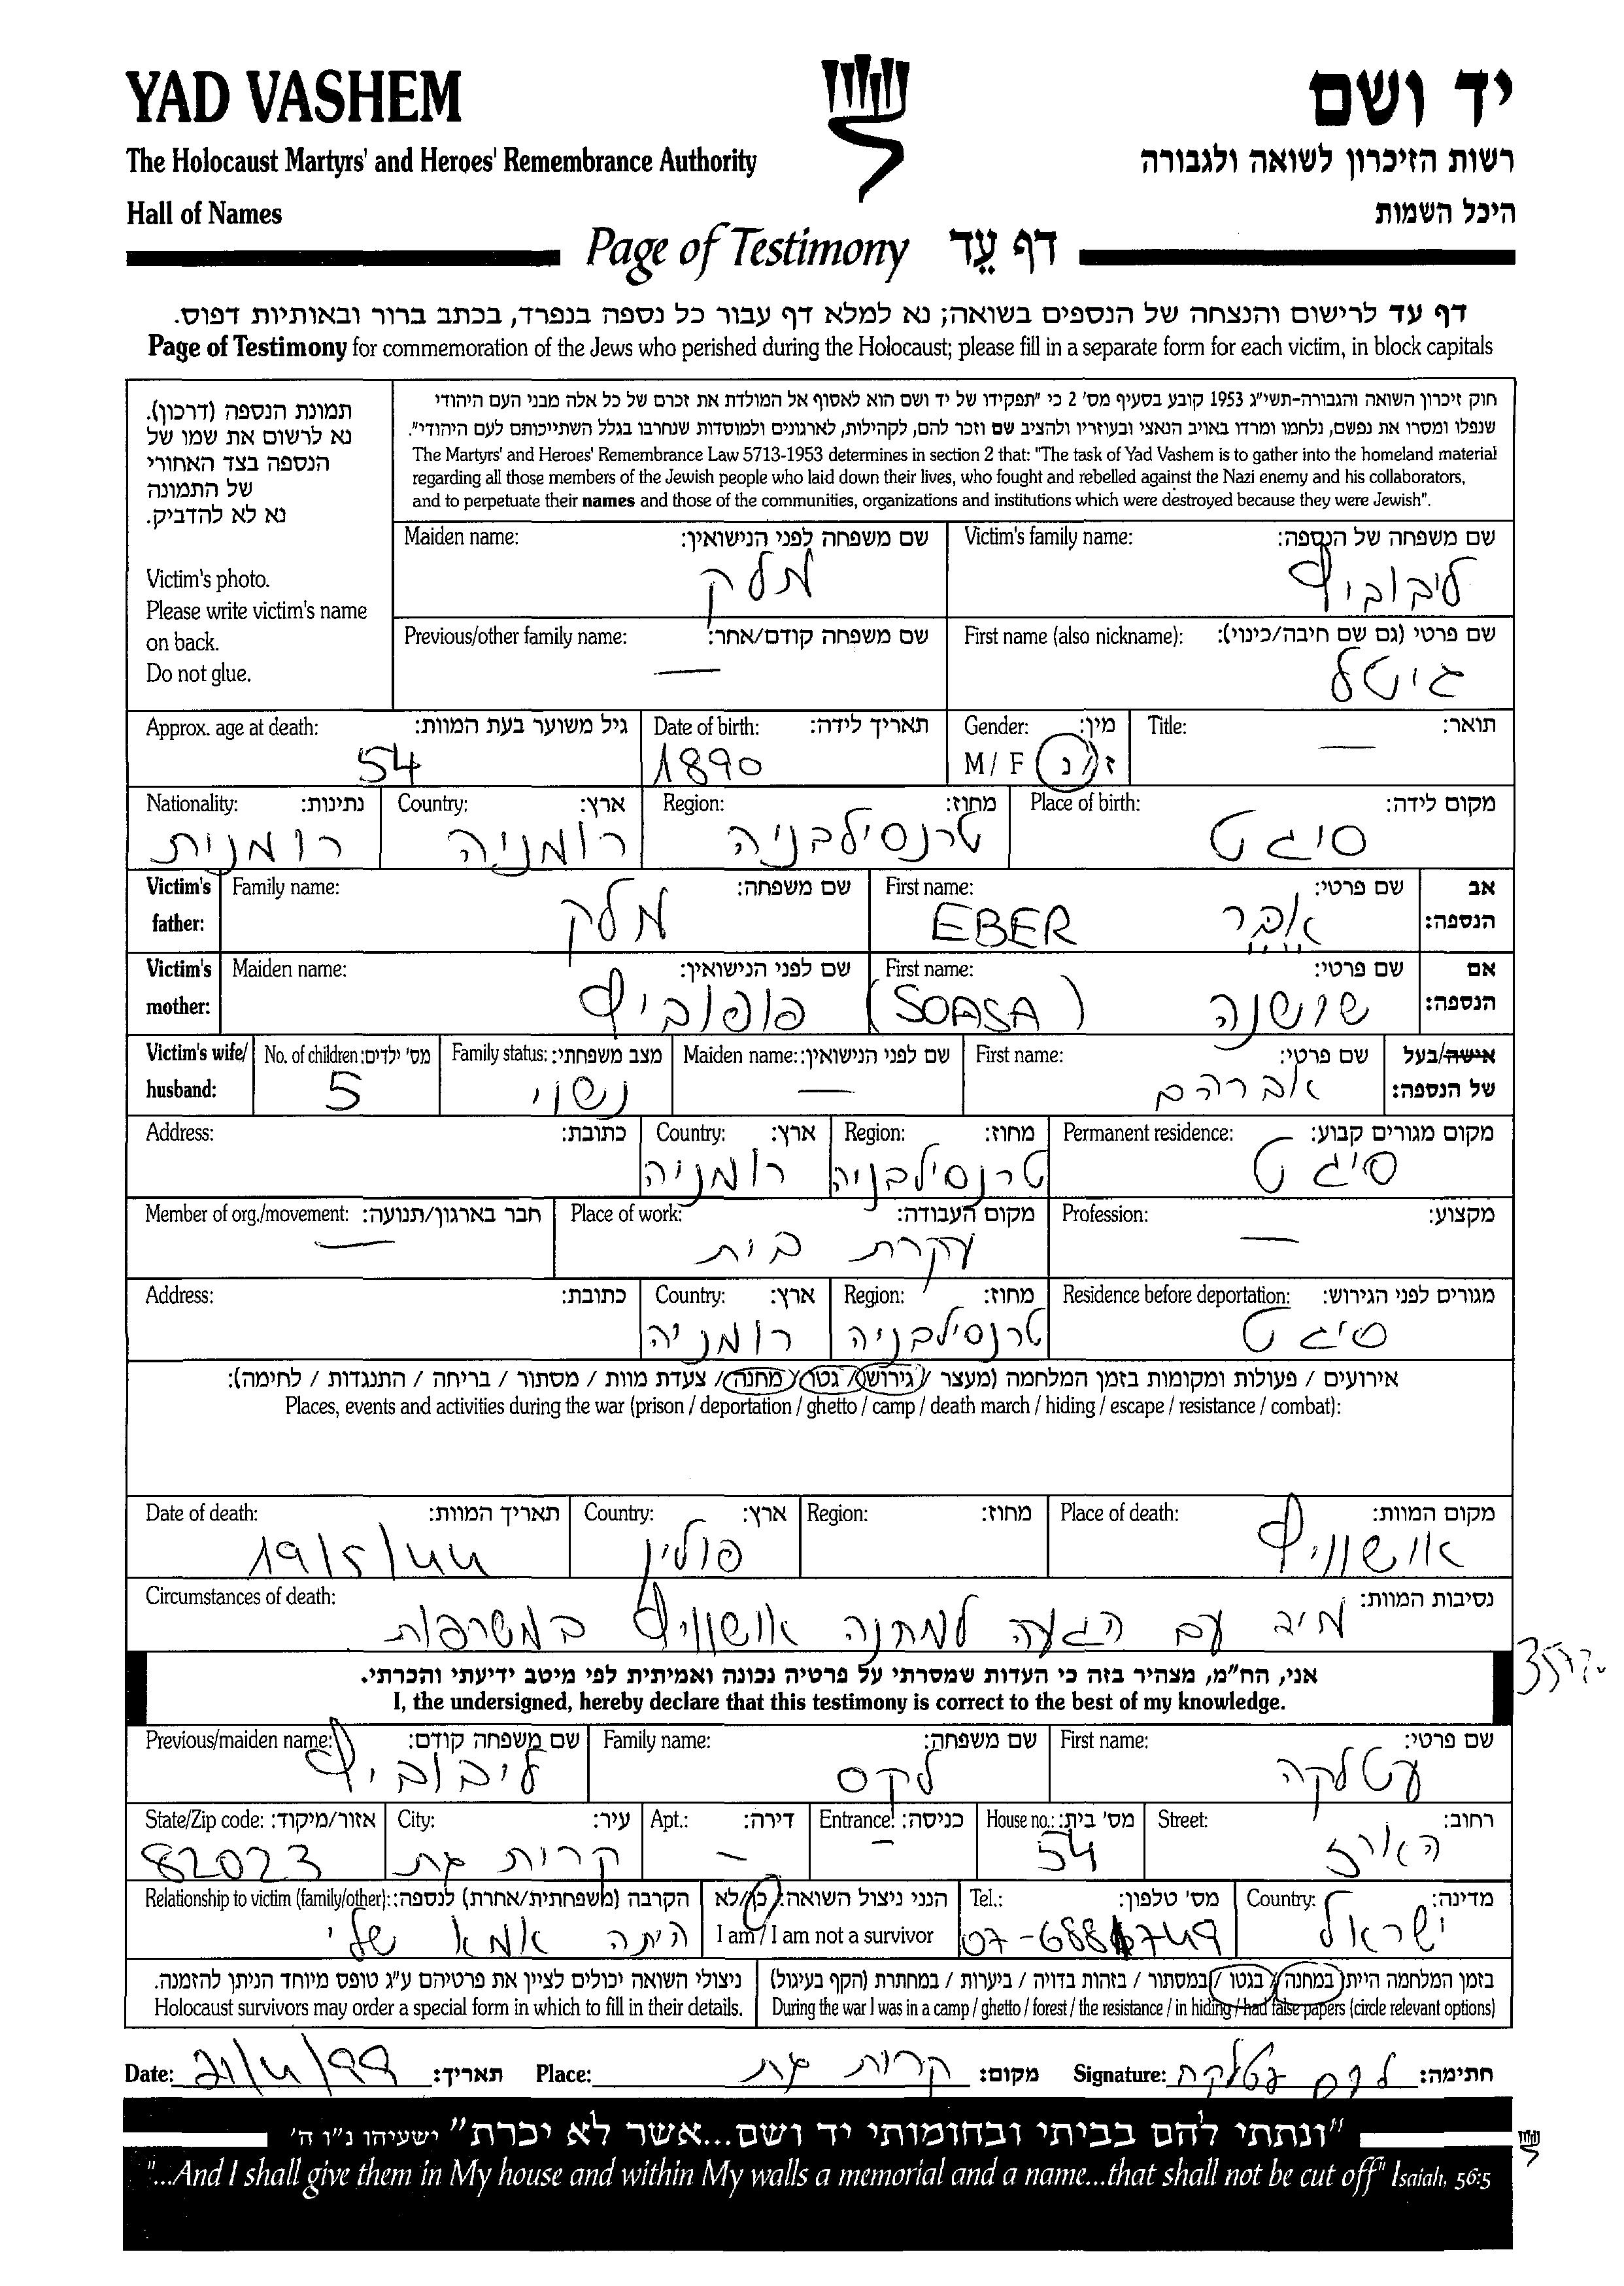 YAD VASHEM
יד ושם
The Holocaust Martyrs' and Heroes' Remembrance Authority
רשות הזיכרון לשואה ולגבורה
Hall of Names
היכל השמות
Page of Testimony דף עֵד
דף עד לרישום והנצחה של הנספים בשואה; נא למלא דף עבור כל נספה בנפרד, בכתב ברור ובאותיות דפוס.
Page of Testimony for commemoration of the Jews who perished during the Holocaust; please fill in a separate form for each victim, in block capitals
תמונת הנספה (דרכון).
נא לרשום את שמו של
הנספה בצד האחורי
של התמונה
נא לא להדביק.
Victim's photo.
Please write victim's name
on back.
Do not glue.
חוק זיכרון השואה והגבורה-תשי"ג 1953 קובע בסעיף מס' 2 כי "תפקידו של יד ושם הוא לאסוף אל המולדת את זכרם של כל אלה מבני העם היהודי
שנפלו ומסרו את נפשם, נלחמו ומרדו באויב הנאצי ובעוזריו ולהציב שם וזכר להם, לקהילות, לארגונים ולמוסדות שנחרבו בגלל השתייכותם לעם היהודי".
The Martyrs' and Heroes' Remembrance Law 5713-1953 determines in section 2 that: "The task of Yad Vashem is to gather into the homeland material
regarding all those members of the Jewish people who laid down their lives, who fought and rebelled against the Nazi enemy and his collaborators,
and to perpetuate their names and those of the communities, organizations and institutions which were destroyed because they were Jewish".
Victim's family name: שם משפחה של הנספה:
ליבוביץ
Maiden name: שם משפחה לפני הנישואין:
מלק
First name (also nickname): שם פרטי (גם שם חיבה/כינוי):
גיטל
Previous/other family name: שם משפחה קודם/אחר:
—
Title: תואר:
—
Gender: מין:
M / F ז/נ
Date of birth: תאריך לידה:
1890
Approx. age at death: גיל משוער בעת המוות:
54
Place of birth: מקום לידה:
סיגט
Region: מחוז:
טרנסילבניה
Country: ארץ:
רומניה
Nationality: נתינות:
רומנית
Victim's father: אב הנספה:
First name: שם פרטי:
אבר EBER
Family name: שם משפחה:
מלק
Victim's mother: אם הנספה:
First name: שם פרטי:
שושנה (SOASA)
Maiden name: שם לפני הנישואין:
פופוביץ
Victim's wife/ husband: אישה/בעל של הנספה:
First name: שם פרטי:
אברהם
Maiden name: שם לפני הנישואין:
—
Family status: מצב משפחתי:
נשוי
No. of children: מס' ילדים:
5
Permanent residence: מקום מגורים קבוע:
סיגט
Region: מחוז:
טרנסילבניה
Country: ארץ:
רומניה
Address: כתובת:
Profession: מקצוע:
—
Place of work: מקום העבודה:
עקרת בית
Member of org./movement: חבר בארגון/תנועה:
—
Residence before deportation: מגורים לפני הגירוש:
סיגט
Region: מחוז:
טרנסילבניה
Country: ארץ:
רומניה
Address: כתובת:
אירועים / פעולות ומקומות בזמן המלחמה (מעצר / גירוש / גטו / מחנה / צעדת מוות / מסתור / בריחה / התנגדות / לחימה):
Places, events and activities during the war (prison / deportation / ghetto / camp / death march / hiding / escape / resistance / combat):
Place of death: מקום המוות:
אושוויץ
Region: מחוז:
Country: ארץ:
פולין
Date of death: תאריך המוות:
19/5/44
Circumstances of death: נסיבות המוות:
מיד עם הגעה למחנה אושוויץ במשרפות
אני, הח"מ, מצהיר בזה כי העדות שמסרתי על פרטיה נכונה ואמיתית לפי מיטב ידיעתי והכרתי.
I, the undersigned, hereby declare that this testimony is correct to the best of my knowledge.
First name: שם פרטי:
עטלקה
Family name: שם משפחה:
לקס
Previous/maiden name: שם משפחה קודם:
ליבוביץ
Street: רחוב:
הארז
House no.: מס' בית:
54
Entrance: כניסה:
–
Apt.: דירה:
–
City: עיר:
קרית גת
State/Zip code: אזור/מיקוד:
82023
Country: מדינה:
ישראל
Tel.: מס' טלפון:
הנני ניצול השואה: כן/לא
I am / I am not a survivor
Relationship to victim (family/other): הקרבה (משפחתית/אחרת) לנספה:
היתה אמא שלי
בזמן המלחמה הייתי במחנה / בגטו / במסתור / בזהות בדויה / ביערות / במחתרת (הקף בעיגול)
During the war I was in a camp / ghetto / forest / the resistance / in hiding / had false papers (circle relevant options)
ניצולי השואה יכולים לציין את פרטיהם ע"ג טופס מיוחד הניתן להזמנה.
Holocaust survivors may order a special form in which to fill in their details.
Date: 21/4/99 תאריך: Place: קרית גת מקום: Signature: לקס עטלקה חתימה:
"ונתתי להם בביתי ובחומותי יד ושם...אשר לא יכרת" ישעיהו נ"ו ה'
"...And I shall give them in My house and within My walls a memorial and a name...that shall not be cut off" Isaiah, 56:5